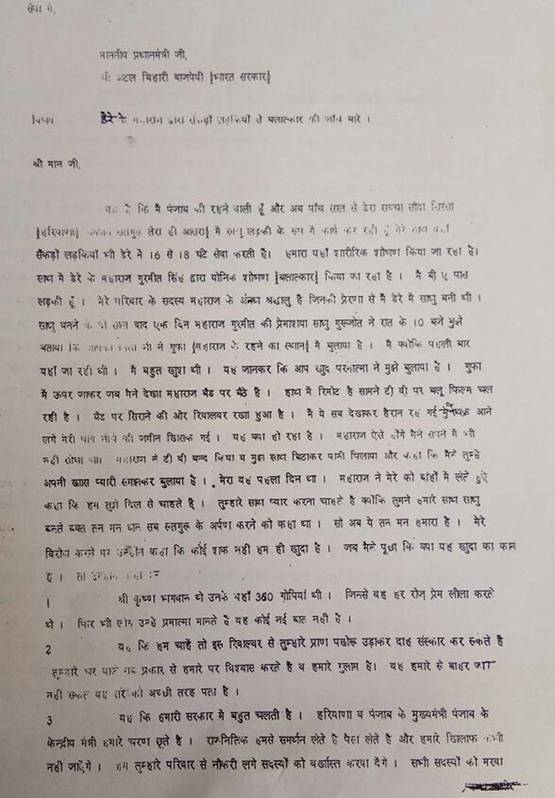 सेवा में,
माननीय प्रधानमंत्री जी,
श्री अटल बिहारी बाजपेयी [भारत सरकार]
विषय डेरे के महाराज द्वारा सैकड़ों लड़कियों से बलात्कार की जाँच बारे ।
श्री मान जी,
यह है कि मैं पंजाब की रहने वाली हूँ और अब पाँच साल से डेरा सच्चा सौदा सिरसा
[हरियाणा] सतगुरु तेरा ही आसरा] में साधु लड़की के रूप में कार्य कर रही हूँ मेरे साथ यहाँ
सैकड़ों लड़कियाँ भी डेरे में 16 से 18 घंटे सेवा करती हैं। हमारा यहाँ शारीरिक शोषण किया जा रहा है।
साथ में डेरे के महाराज गुरमीत सिंह द्वारा योनिक शोषण [बलात्कार] किया जा रहा है । मैं बी ए पास
लड़की हूँ । मेरे परिवार के सदस्य महाराज के अंधा श्रद्धालु है जिनकी प्रेरणा से मैं डेरे में साधु बनी थी ।
साधु बनने के दो साल बाद एक दिन महाराज गुरमीत की प्रेमशिष्या साधु गुरूजोत ने रात के 10 बजे मुझे
बताया कि आपको पिता जी ने गुफा [महाराज के रहने का स्थान] में बुलाया है । मैं क्योंकि पहली बार
वहाँ जा रही थी । मैं बहुत खुश थी । यह जानकर कि आप खुद परमात्मा ने मुझे बुलाया है । गुफा
में ऊपर जाकर जब मैंने देखा महाराज बैड पर बैठे है । हाथ में रिमोट है सामने टी वी पर ब्लू फिल्म चल
रही है । बैड पर सिराने की ओर रिवाल्वर रखा हुआ है । मैं ये सब देखकर हैरान रह गई मुझे चक्कर आने
लगे मेरी पांव नीचे की जमीन खिसक गई । यह क्या हो रहा है । महाराज ऐसे होंगे मैंने सपने में भी
नहीं सोचा था। महाराज ने टी वी बन्द किया व मुझे साथ बिठाकर पानी पिलाया और कहा कि मैंने तुम्हे
अपनी खास प्यारी समझकर बुलाया है । मेरा यह पहला दिन था । महाराज ने मेरे को बांहों में लेते हुऐ
कहा कि हम तुझे दिल से चाहते है । तुम्हारे साथ प्यार करना चाहते है क्योंकि तुमने हमारे साथ साधु
बनते वक्त तन मन धन सब सतगुरू के अर्पण करने को कहा था । सो अब ये तन मन हमारा है । मेरे
विरोध करने पर उन्होंने कहा कि कोई शक नहीं हम ही खुदा है । जब मैंने पूछा कि क्या यह खुदा का काम
है । तो उन्होंने कहा :-
1 श्री कृष्ण भगवान थे उनके यहाँ 360 गोपियां थी । जिनसे वह हर रोज प्रेम लीला करते
थे । फिर भी लोग उन्हे प्रमात्मा मानते है यह कोई नई बात नहीं है ।
2 यह कि हम चाहें तो इस रिवाल्वर से तुम्हारे प्राण पखेरू उड़ाकर दाह संस्कार कर सकते है
तुम्हारे घर वाले हर प्रकार से हमारे पर विश्वास करते है व हमारे गुलाम है। वह हमारे से बाहर जा
नहीं सकते यह तेरे को अच्छी तरह पता है ।
3 यह कि हमारी सरकार में बहुत चलती है । हरियाणा व पंजाब के मुख्यमंत्री पंजाब के
केन्द्रीय मंत्री हमारे चरण छूते है । राजनितिक हमसे समर्थन लेते है पैसा लेते है और हमारे खिलाफ कभी
नहीं जाऐंगे । हम तुम्हारे परिवार से नौकरी लगे सदस्यों को बर्खास्त करवा देंगे । सभी सदस्यों को मरवा